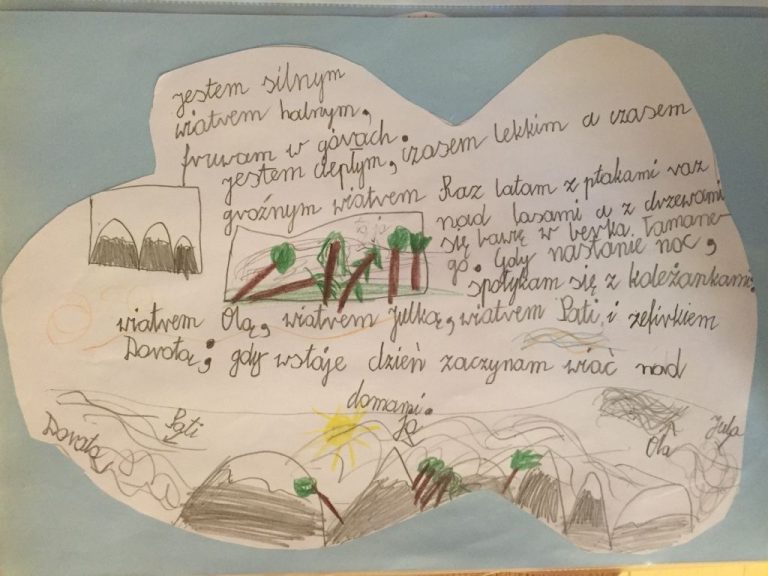 jestem silnym
wiatrem halnym,
fruwam w górach.
jestem ciepłym, czasem lekkim a czasem
groźnym wiatrem Raz latam z ptakami raz
nad lasami a z drzewami
się bawię w berka. łamane
go. Gdy nastanie noc,
spotykam się z koleżankami:
wiatrem Olą, wiatrem Julką, wiatrem Pati i zefirkiem
Dorotą; gdy wstaje dzień zaczynam wiać nad
domami.
to ja
Dorota
Pati
Ja
Ola
Jula